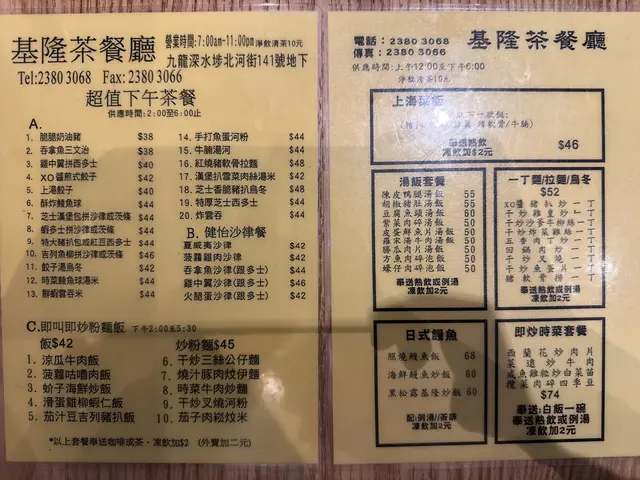 基隆茶餐廳
營業時間:7:00am-11:00pm 淨飲清茶10元
九龍深水埗北河街141號地下
Tel:2380 3068 Fax: 2380 3066
超值下午茶餐
供應時間:2:00至6:00止
A.
1. 脆脆奶油豬 $38
2. 吞拿魚三文治 $38
3. 雞中翼拼西多士 $40
4. XO醬煎式餃子 $40
5. 上湯餃子 $40
6. 酥炸鯪魚球 $44
7. 芝士漢堡包拼沙律或茨條 $44
8. 蝦多士拼沙律或茨條 $44
9. 特大豬扒包或紅豆西多士 $44
10. 吉列魚柳拼沙律或茨條 $46
11. 餃子湯烏冬 $42
12. 時菜鯪魚球湯米 $44
13. 鮮蝦雲吞米 $44
14. 手打魚蛋河粉 $44
15. 牛腩湯河 $44
16. 紅燒豬軟骨拉麵 $48
17. 漢堡扒雪菜肉絲湯米 $42
18. 芝士香腸豬扒烏冬 $48
19. 特厚芝士西多士 $44
20. 炸雲吞 $44
B. 健怡沙律餐
夏威夷沙律 $42
菠蘿雞肉沙律 $42
吞拿魚沙律(跟多士) $44
雞中翼沙律(跟多士) $46
火腿蛋沙律(跟多士) $42
C.即叫即炒粉麵飯 下午2:00至5:30
飯$42
1. 涼瓜牛肉飯
2. 菠蘿咕嚕肉飯
3. 蚧子海鮮炒飯
4. 滑蛋雞柳蝦仁飯
5. 茄汁豆吉列豬扒飯
炒粉麵$45
6. 干炒三絲公仔麵
7. 燒汁豚肉炆伊麵
8. 時菜牛肉炒麵
9. 干炒叉燒河粉
10. 茄子肉崧炆米
*以上套餐奉送咖啡或茶、凍飲加$2 (外賣加二元)
電話:2380 3068
傳真:2380 3066
基隆茶餐廳
供應時間:上午12:00至下午6:00
淨飲清茶10元
上海菜飯
$46
奉送熱飲
凍飲加2元
湯飯套餐
陳皮鴨腿湯飯 55
胡椒豬肚湯飯 55
豆腐魚頭湯飯 60
蕃茄魚湯飯 50
皮蛋鮮魚片湯飯 50
羅宋湯牛肉湯飯 50
勝瓜肉片湯飯 50
方魚肉碎泡飯 50
蠔仔肉碎泡飯 50
奉送熱飲或例湯
凍飲加2元
一丁麵/拉麵/烏冬
$52
XO醬豬扒炒一丁
干炒雞皇炒一丁
干炒沙爹牛柳絲一丁
干炒炸菜雞絲一丁
五香肉丁炒一丁
回鍋肉炒一丁
干炒叉燒一丁
干炒魚蛋片一丁
豬軟骨炒一丁
奉送熱飲或例湯
凍飲加2元
日式鰻魚
照燒鰻魚飯 68
海鮮鰻魚炒飯 60
黑松露基隆炒飯 60
配:例湯//茶啡
凍飲加2元
即炒時菜套餐
西蘭花炒肉片
菜遠炒牛肉
咸魚雞粒炒白菜苗
欖菜肉碎四季豆
$74
奉送:白飯一碗
奉送熱飲或例湯
凍飲加2元